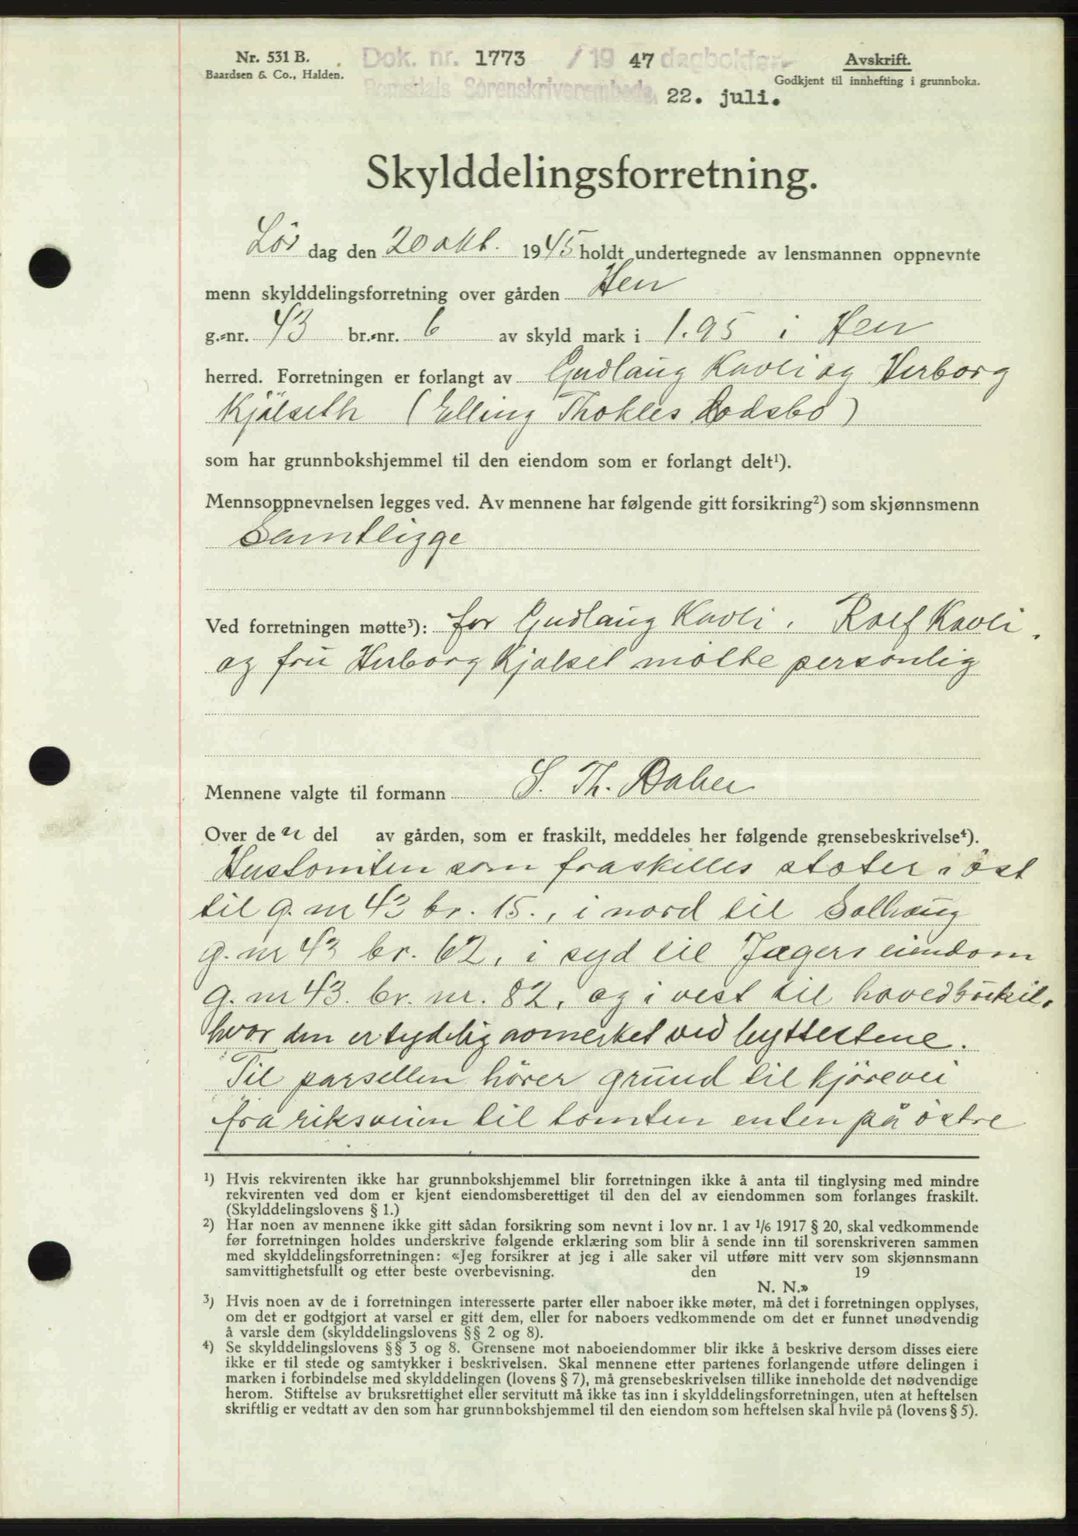 Nr. 531 B.
Baardsen & Co., Halden.
Dok. nr. 1773 / 19 47 dagboken
Romsdals Sorenskriverembede, 22. juli.
Avskrift.
Godkjent til innhefting i grunnboka.
Skylddelingsforretning.
Lör dag den 20 okt. 1945 holdt undertegnede av lensmannen oppnevnte
menn skylddelingsforretning over gården Hen
g.-nr. 43 br.-nr. 6 av skyld mark i 1.95 i Hen
herred. Forretningen er forlangt av Gudlaug Kavli og Herborg
Kjälseth (Elling Thokles Bodsbo)
som har grunnbokshjemmel til den eiendom som er forlangt delt¹).
Mennsoppnevnelsen legges ved. Av mennene har følgende gitt forsikring²) som skjønnsmenn
Samtligge
Ved forretningen møtte³): for Gudlaug Kavli, Rolf Kavli,
og fru Herborg Kjalset mötte personlig
Mennene valgte til formann S. Th. Dahle
Over den del av gården, som er fraskilt, meddeles her følgende grensebeskrivelse⁴).
Hustomten som fraskilles stöter i öst
til g. nr 43 br. 15., i nord til Solhaug
g. nr 43 br. 62, i syd til Jægers eiendom
g. nr 43. br. nr. 82, og i vest til hovedbölet,
hvor den er tydelig avmerket ved byttestene.
Til parsellen hörer grund til kjörevei
fra riksveien til tomten enten på östre
¹) Hvis rekvirenten ikke har grunnbokshjemmel blir forretningen ikke å anta til tinglysing med mindre
rekvirenten ved dom er kjent eiendomsberettiget til den del av eiendommen som forlanges fraskilt.
(Skylddelingslovens § 1.)
²) Har noen av mennene ikke gitt sådan forsikring som nevnt i lov nr. 1 av 1/6 1917 § 20, skal vedkommende
før forretningen holdes underskrive følgende erklæring som blir å sende inn til sorenskriveren sammen
med skylddelingsforretningen: «Jeg forsikrer at jeg i alle saker vil utføre mitt verv som skjønnsmann
samvittighetsfullt og etter beste overbevisning. den 19
N. N.»
³) Hvis noen av de i forretningen interesserte parter eller naboer ikke møter, må det i forretningen opplyses,
om det er godtgjort at varsel er gitt dem, eller for naboers vedkommende om det er funnet unødvendig
å varsle dem (skylddelingslovens §§ 2 og 8).
⁴) Se skylddelingslovens §§ 3 og 8. Grensene mot naboeiendommer blir ikke å beskrive dersom disses eiere
ikke er til stede og samtykker i beskrivelsen. Skal mennene etter partenes forlangende utføre delingen i
marken i forbindelse med skylddelingen (lovens § 7), må grensebeskrivelsen tillike inneholde det nødvendige
herom. Stiftelse av bruksrettighet eller servitutt må ikke tas inn i skylddelingsforretningen, uten at heftelsen
skriftlig er vedtatt av den som har grunnbokshjemmel til den eiendom som heftelsen skal hvile på (lovens § 5).